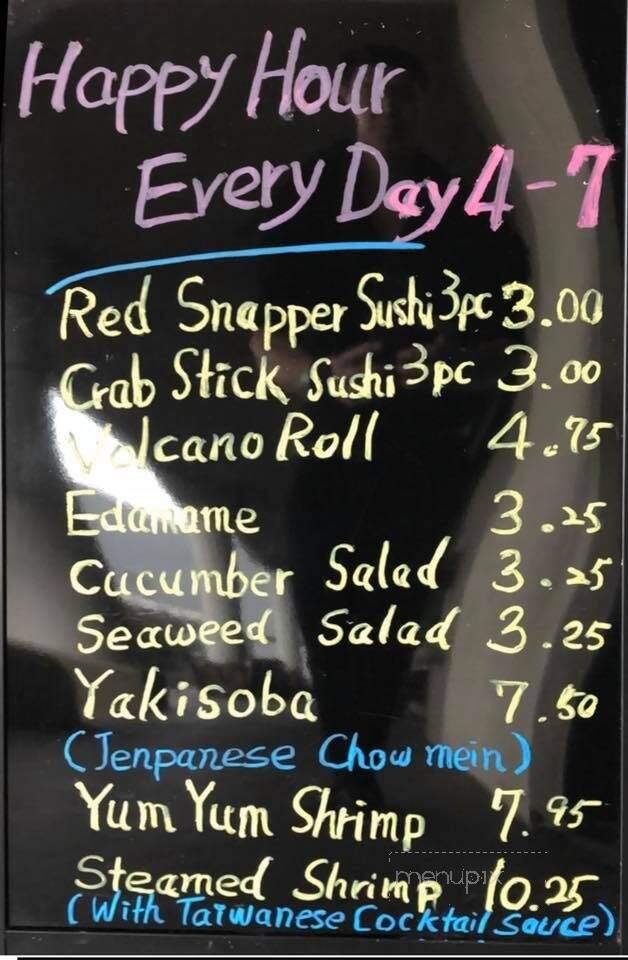 Happy Hour
Every Day 4-7
Red Snapper Sushi 3pc 3.00
Crab Stick Sushi 3pc 3.00
Volcano Roll 4.75
Edamame 3.25
Cucumber Salad 3.25
Seaweed Salad 3.25
Yakisoba 7.50
(Jenpanese Chow mein)
Yum Yum Shrimp 7.95
menupix
Steamed Shrimp 10.25
(With Taiwanese Cocktail sauce)